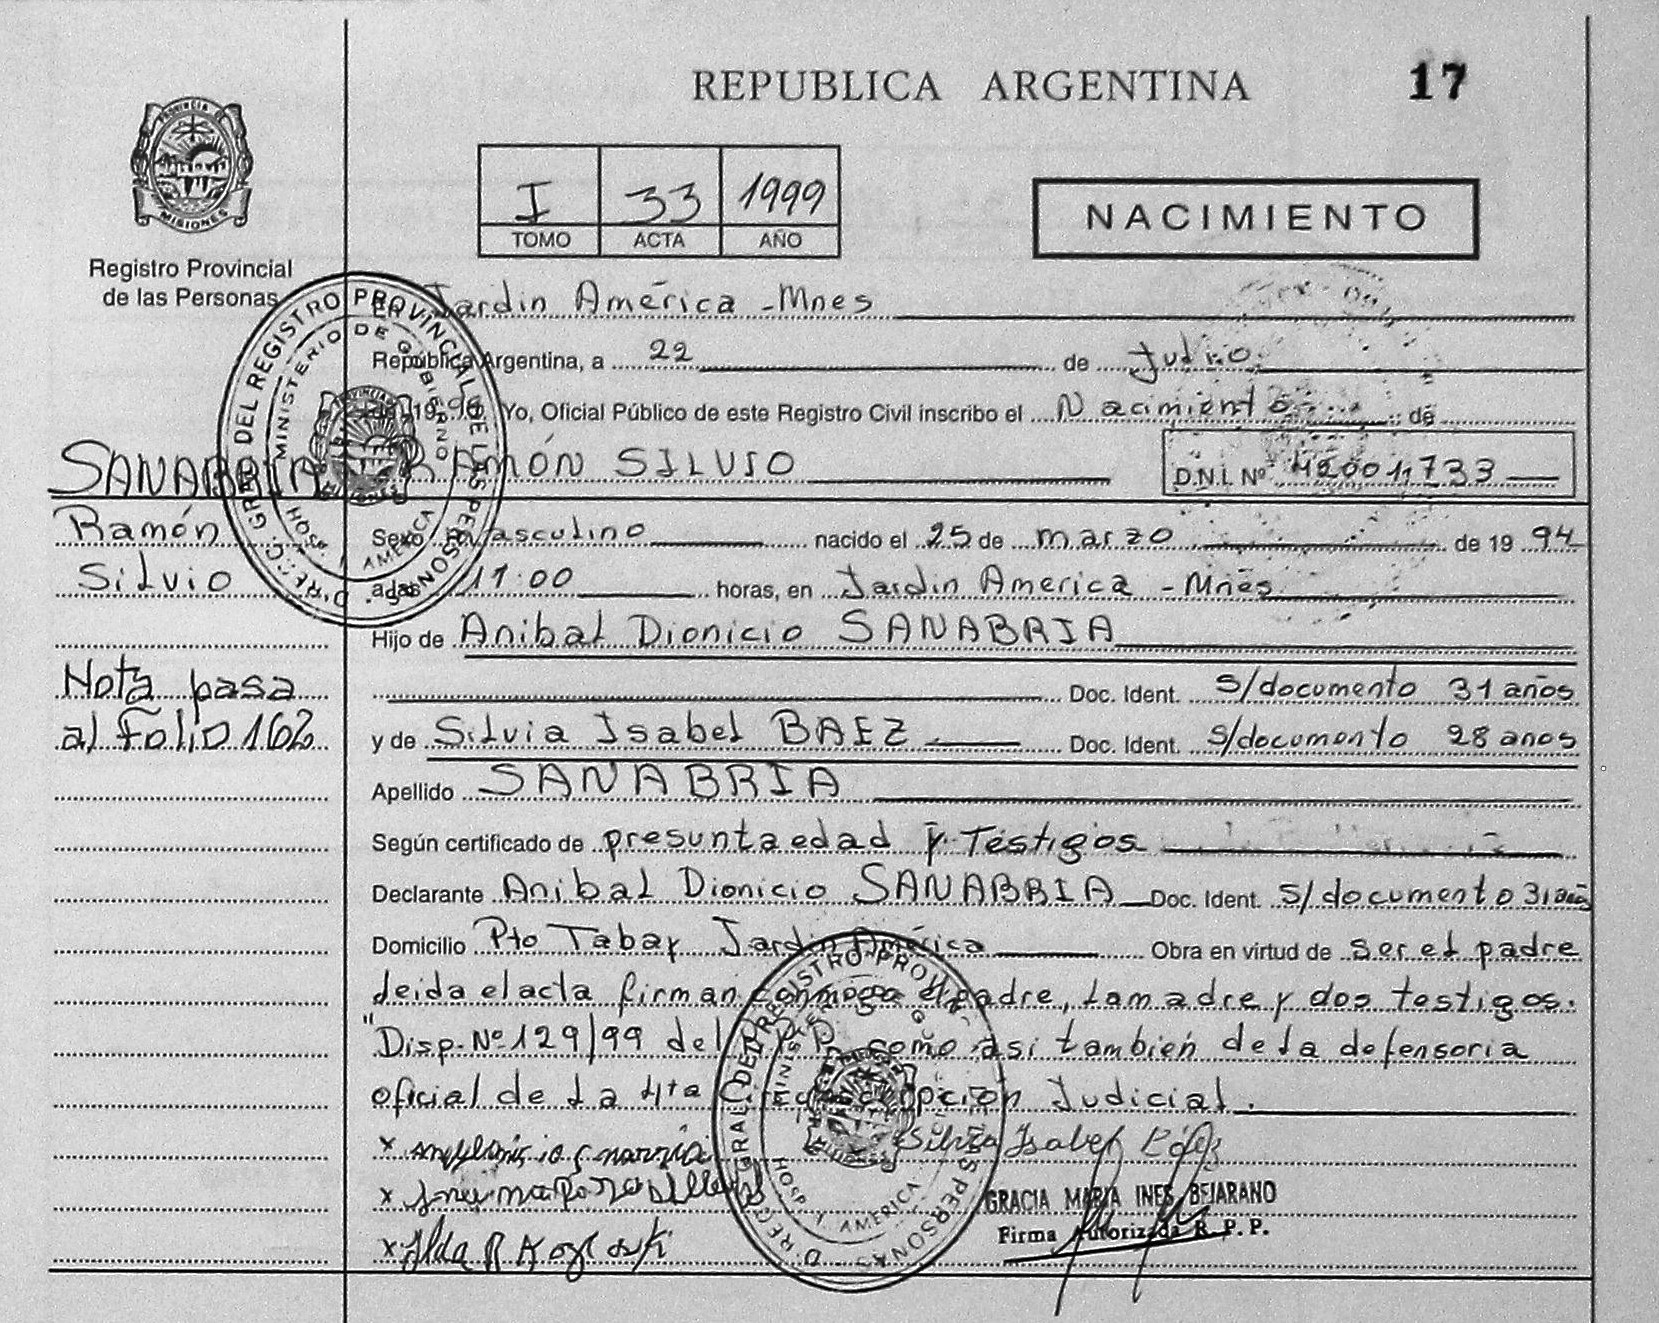 REPUBLICA ARGENTINA
17
PROVINCIA D
MISIONES
Registro Provincial
de las Personas
I 33 1999
TOMO ACTA AÑO
NACIMIENTO
En Jardin América - Mnes
República Argentina, a 22 de Judio
de 19 99 Yo, Oficial Público de este Registro Civil inscribo el Nacimiento de
SANABRIA RAMÓN SILVIO
D.N.I. Nº
Ramón
Silvio
Sexo Masculino nacido el 25 de marzo de 19 94
a las 11:00 horas, en Jardin America - Mnes
Hijo de Anibal Dionicio SANABRIA
Nota pasa
al Folio 162
Doc. Ident. S/documento 31 años
y de Silvia Isabel BAEZ Doc. Ident. S/documento 28 anos
Apellido SANABRIA
Según certificado de presunta edad y Testigos
Declarante Anibal Dionicio SANABRIA Doc. Ident. S/documento 31 años
Domicilio Pto Tabay Jardin América Obra en virtud de ser el padre
leida el acta firman conmigo el padre, la madre y dos testigos.
"Disp. Nº 129/99 del R.P.P. como asi tambien de la defensoria
oficial de la 4ta Circunscripción Judicial.
Silvia Isabel Báez
GRACIA MARIA INES BEJARANO
Firma Autorizada R.P.P.
D'REGC. GRAL DEL REGISTRO PROVINCIAL DE LAS PERSONAS
MINISTERIO DE GOBIERNO
HOSP. J. AMERICA
D'REGC. GRAL DEL REGISTRO PROVINCIAL DE LAS PERSONAS
MINISTERIO DE GOBIERNO
HOSP. J. AMERICA